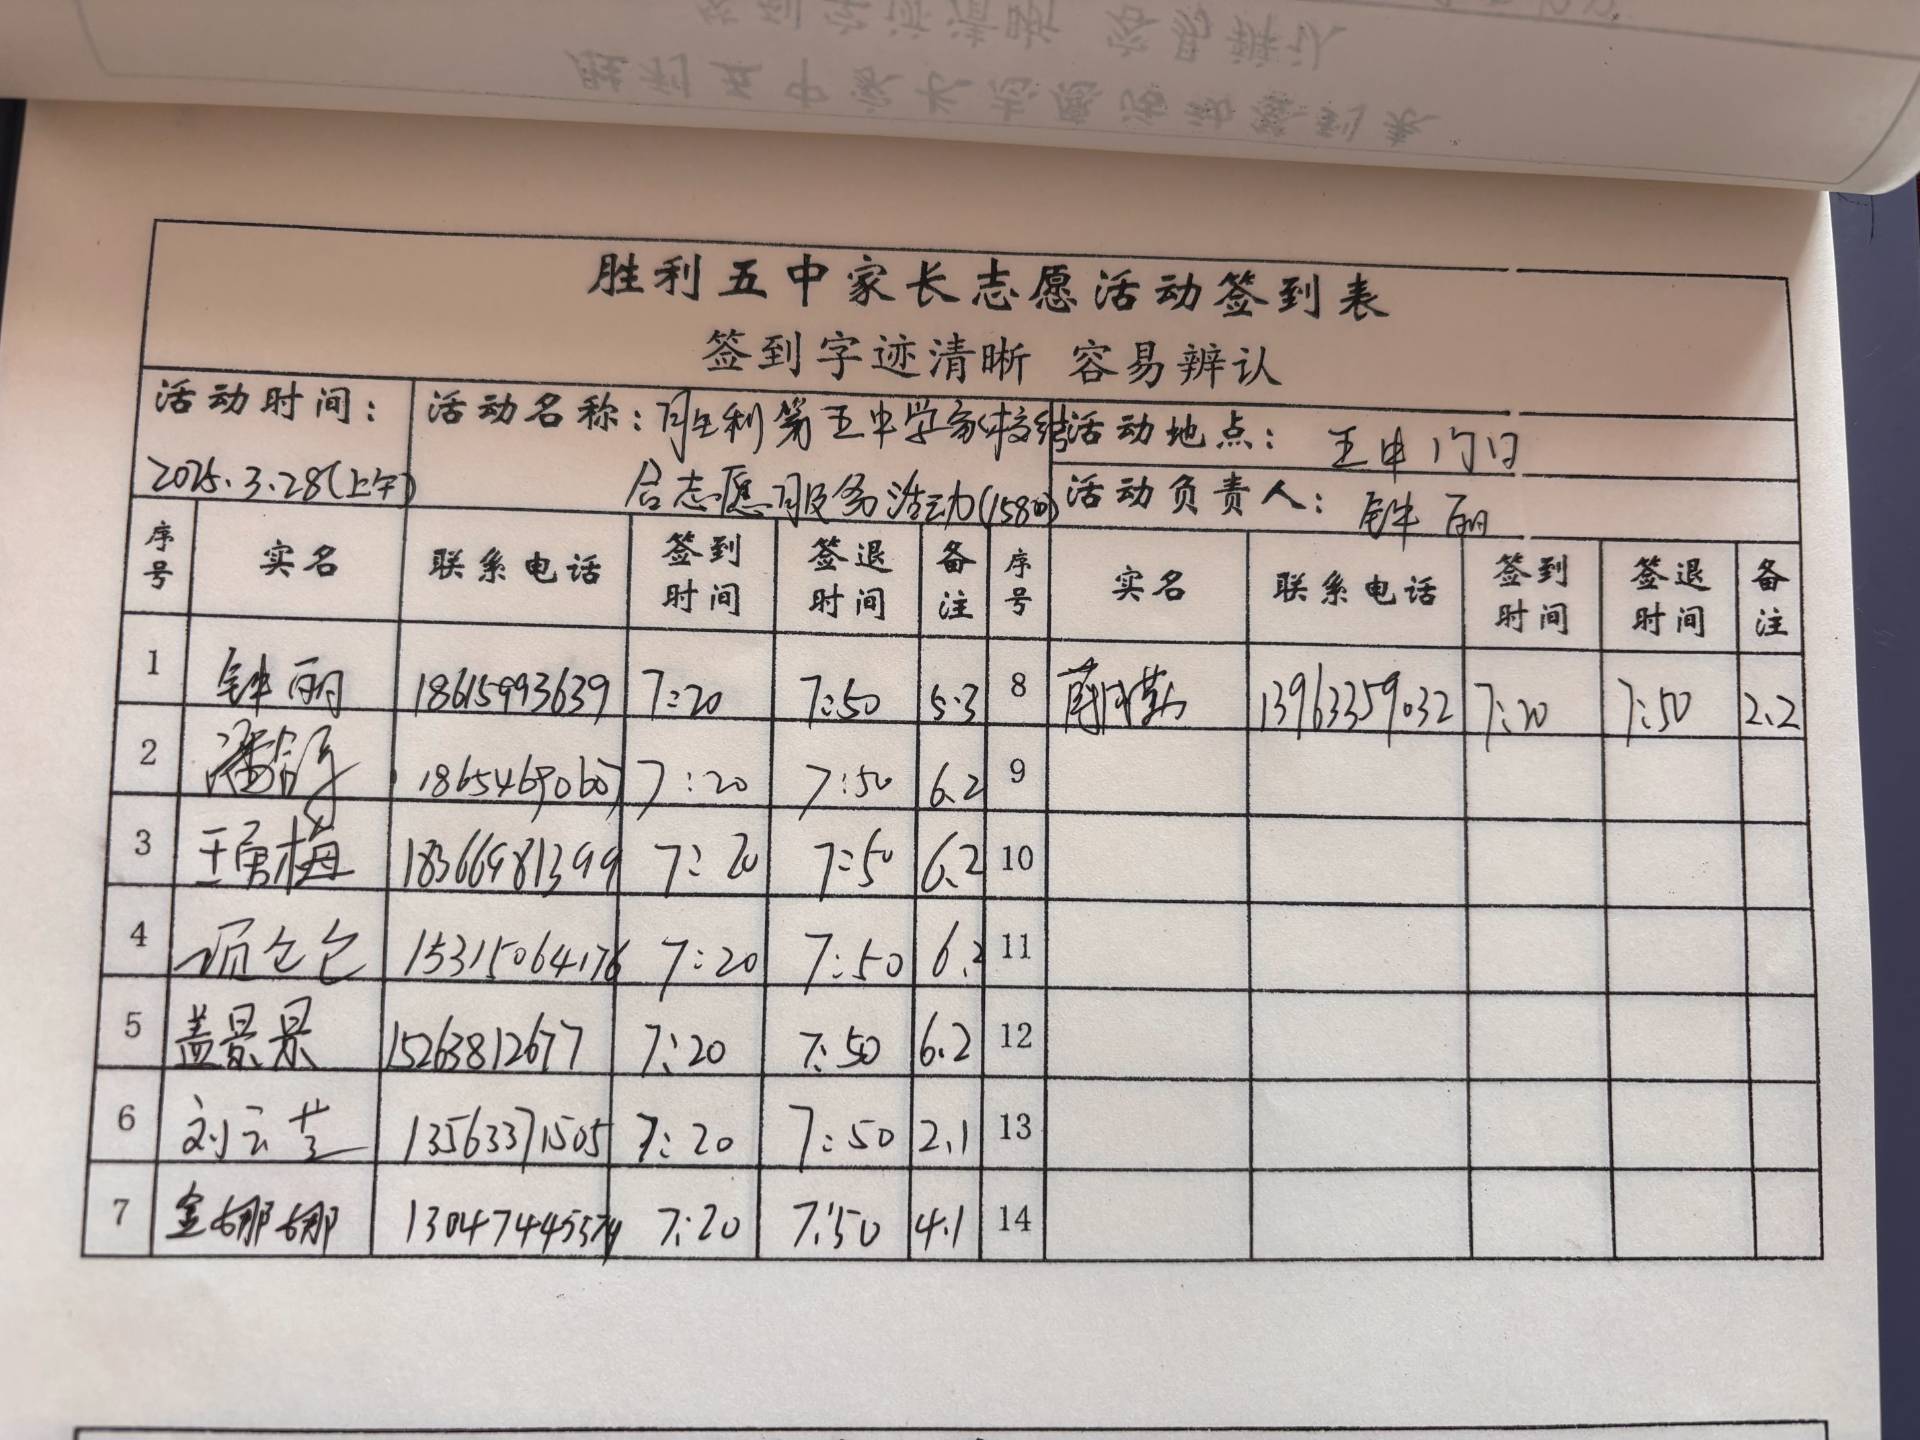 胜利五中家长志愿活动签到表
签到字迹清晰 容易辨认
活动时间：
2025.3.28(上午)
活动名称：胜利第五中学家校结
合志愿服务活动(158
活动地点： 五中门口
活动负责人： 钟丽
序号 实名 联系电话 签到时间 签退时间 备注 序号 实名 联系电话 签到时间 签退时间 备注
1 钟丽 18615993639 7:20 7:50 5.3 8 13963359032 7:20 7:50 2.2
2 潘 18654690607 7:20 7:50 6.2 9
3 王勇梅 18366981399 7:20 7:50 6.2 10
4 15315064176 7:20 7:50 6.2 11
5 盖景景 15263812677 7:20 7:50 6.2 12
6 刘云芝 13563371505 7:20 7:50 2.1 13
7 金娜娜 7:20 7:50 4.1 14